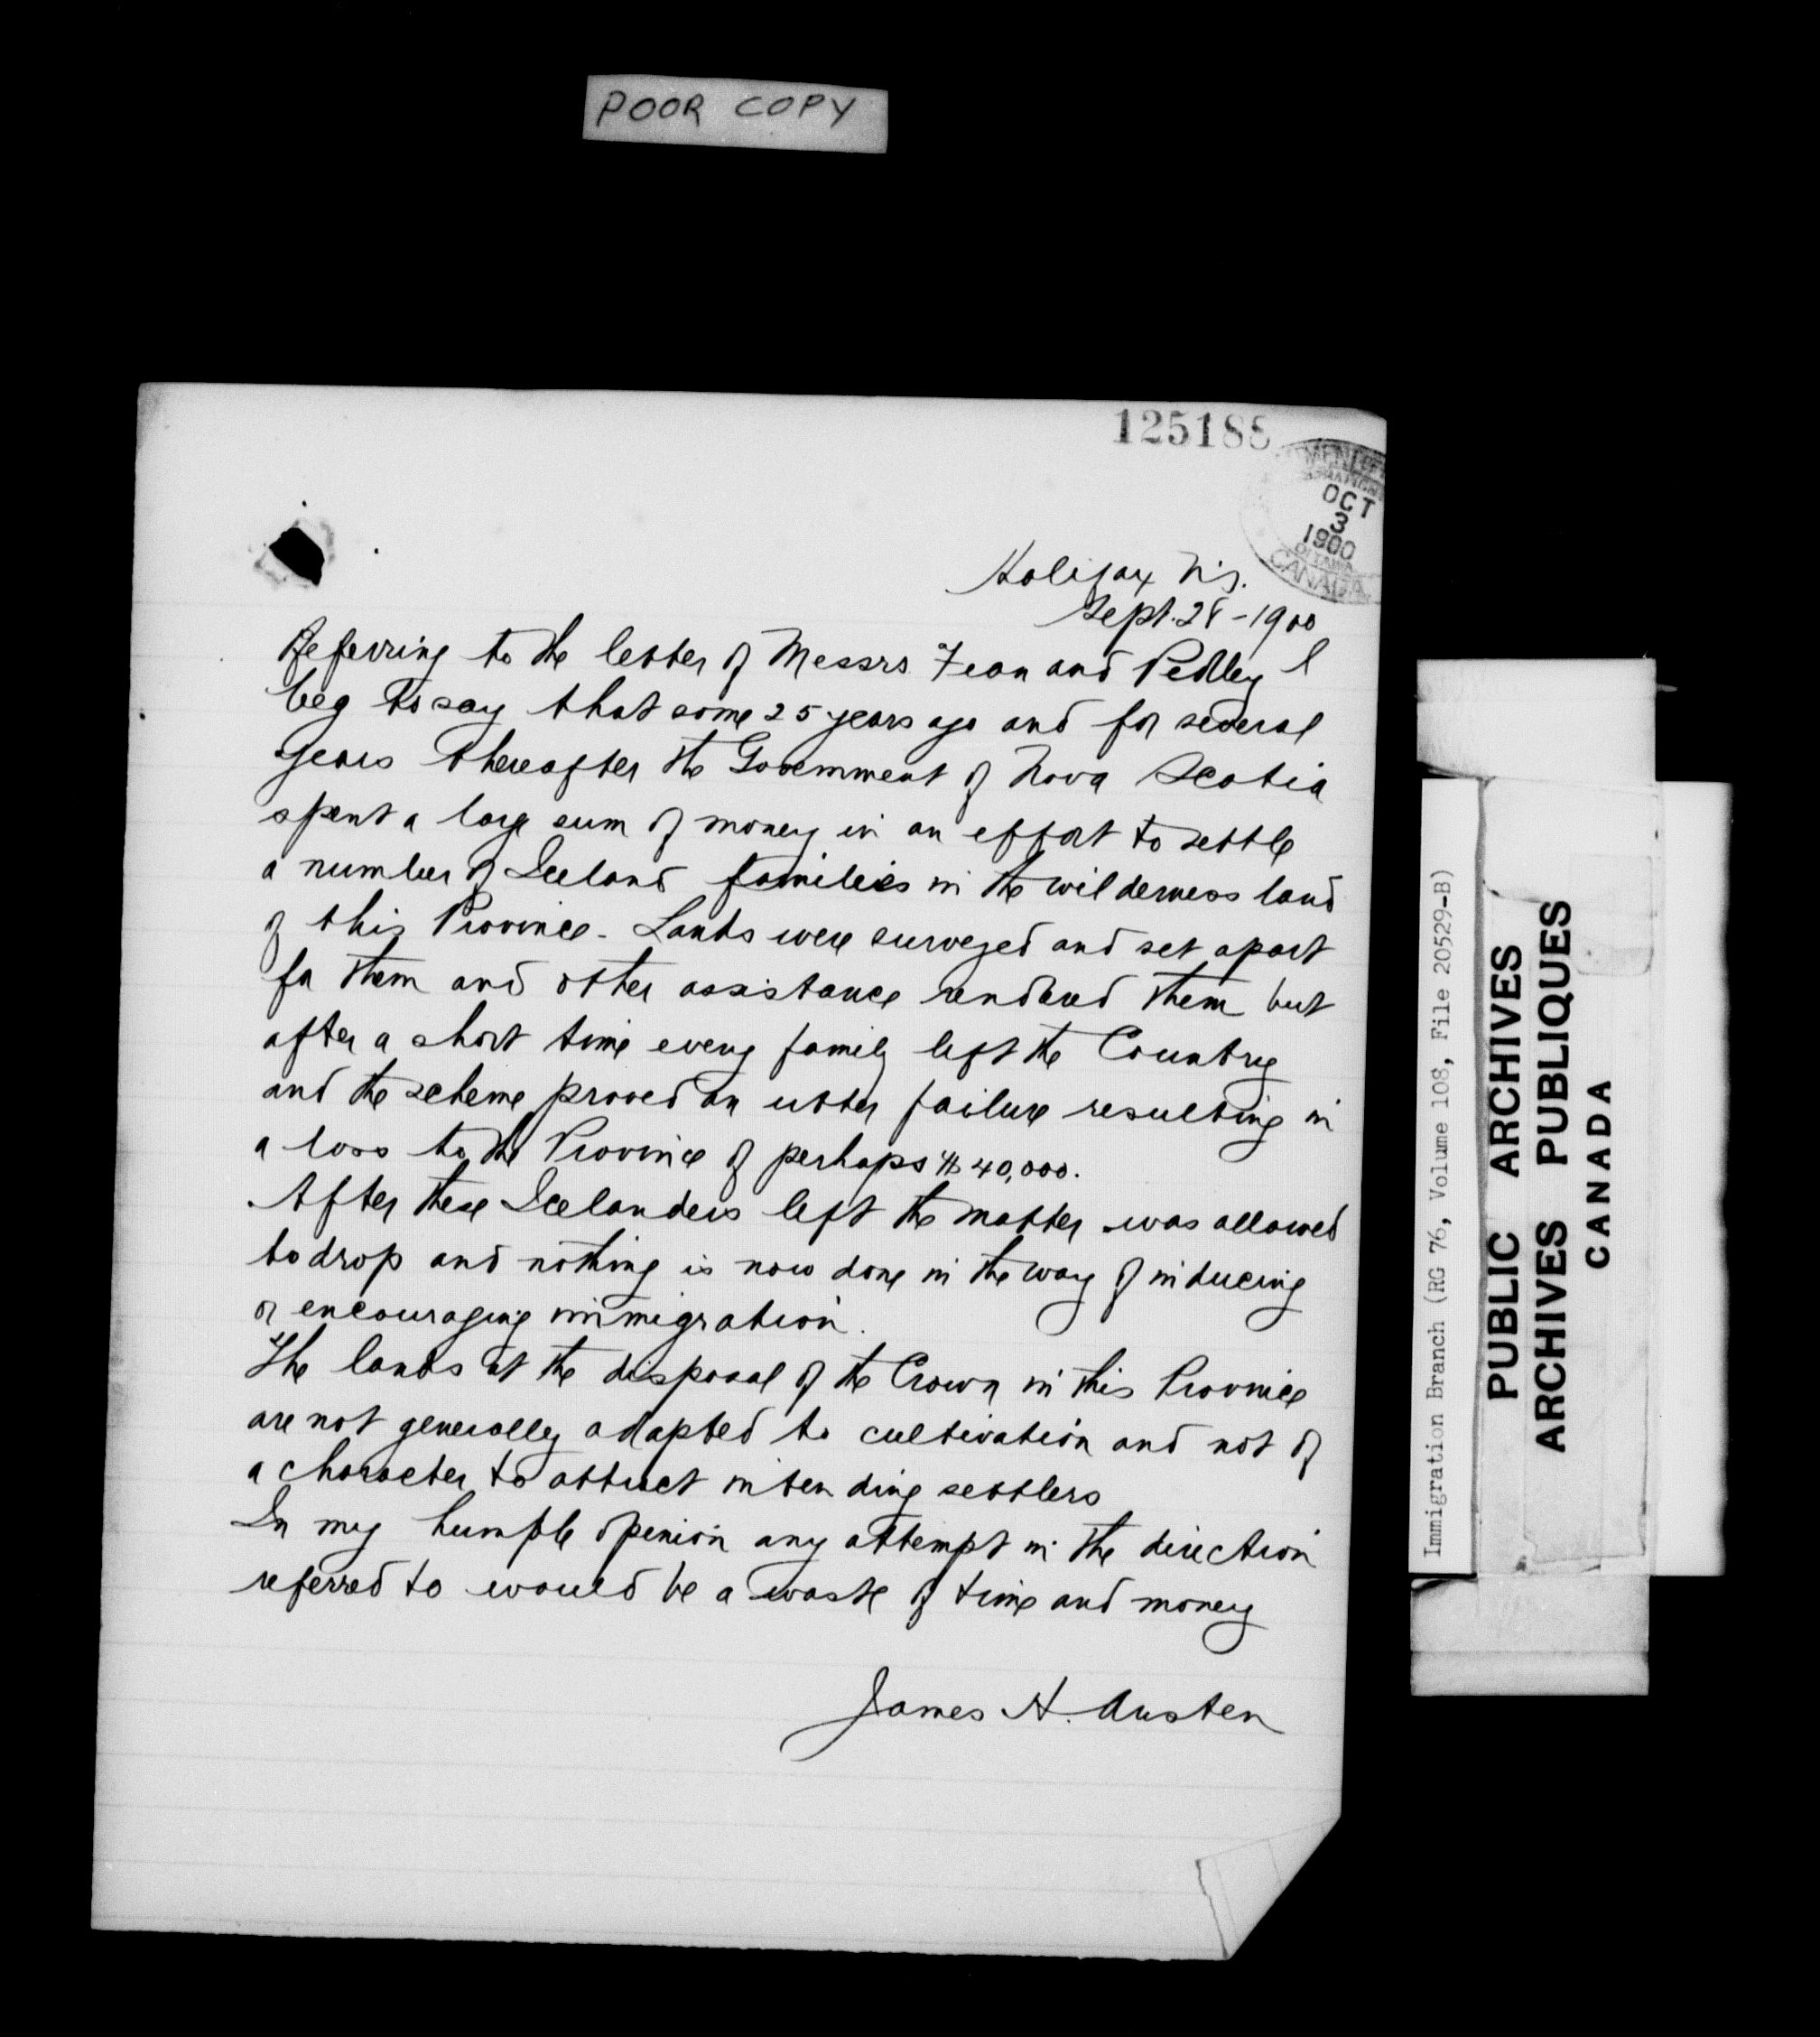 POOR COPY
125188
OCT
3
1900
OTTAWA
CANADA
Halifax N.S.
Sept. 28 - 1900
Referring to the letter of Messrs and Pedley I
beg to say that some 25 years ago and for several
years thereafter the Government of Nova Scotia
spent a large sum of money in an effort to settle
a number of Iceland families in the wilderness land
of this Province - Lands were surveyed and set apart
for them and other assistance rendered them but
after a short time every family left the Country
and the scheme proved an utter failure resulting in
a loss to the Province of perhaps $40,000.
After these Icelanders left the matter was allowed
to drop and nothing is now done in the way of inducing
or encouraging immigration.
The lands at the disposal of the Crown in this Province
are not generally adapted to cultivation and not of
a character to attract intending settlers
In my humble opinion any attempt in the direction
referred to would be a waste of time and money
James H. Austen
Immigration Branch (RG 76, Volume 108, File 20529-B)
PUBLIC ARCHIVES
ARCHIVES PUBLIQUES
CANADA